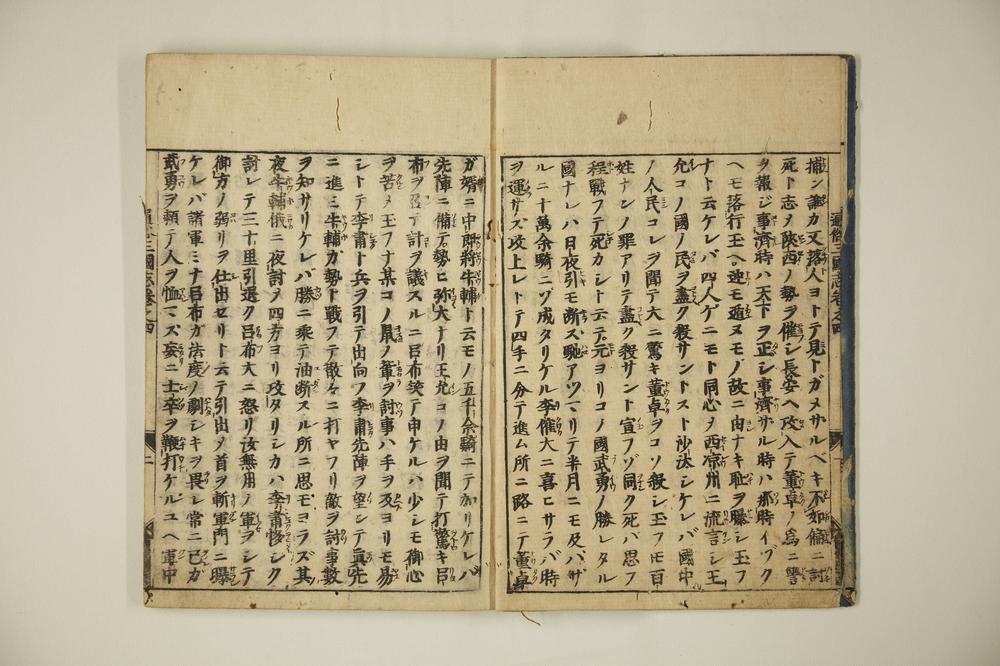 通俗三國志卷之四
捕ン誰カ又落人ヨトテ見トガメサルベキ不如偏ニ討
死ト志ヲ陜西ノ勢ヲ催シ長安ヘ攻入テ董卓ノ為ニ讐
ヲ報シ事濟時ハ天下ヲ正シ事濟サル時ハ那時イヅク
ヘモ落行玉ヘ速モ遁ヌモノ故ニ由ナキ耻ヲ曝シ玉フ
ナト云ケレバ四人ゲニモト同心ヲ西凉州ニ流言シ王
允コノ國ノ民ヲ盡ク殺サントスト沙汰シケレバ國中
ノ人民コレヲ聞テ大ニ驚キ董卓ヲコソ殺シ玉フモ百
姓ナンノ罪アリテ盡ク殺サント宣フゾ同ク死バ思フ
程戰フテ死カシト云テ元ヨリコノ國武勇ノ勝レタル
國ナレハ日夜引モ断ス馳アツマリテ半月ニモ及バザ
ルニ十萬余騎ニゾ成タリケル李傕大ニ喜ヒサラバ時
ヲ運サズ攻上レトテ四手ニ分テ進ム所ニ路ニテ董卓
ガ婿ニ中郎將牛輔ト云モノ五千余騎ニテ加リケレバ
先陣ニ備テ勢ヒ弥大ナリ王允コノ由ヲ聞テ打驚キ呂
布ヲ召テ計ヲ議スルニ呂布笑テ申ケルハ少シモ御心
ヲ苦メ王フナ某コノ鼠ノ輩ヲ討事ハ手ヲ反ヨリモ易
シトテ李肅ト兵ヲ引テ出向フ李肅先陣ヲ望シテ眞先
ニ進ミ牛輔カ勢ト戰フテ散々ニ打ヤフリ敵ヲ討事数
ヲ知サリケレバ勝ニ乘テ油断スル所ニ思モヨラズ其
夜牛輔俄ニ夜討メ四方ヨリ攻タリシカハ李肅惨シク
討レテ三十里引退ク呂布大ニ怒リ汝無用ノ軍ヲシテ
御方ノ弱リヲ仕出セリト云テ引出メ首ヲ斬軍門ニ曝
ケレバ諸軍ミナ呂布ガ法度ノ劇シキヲ畏レ常ニ己ガ
武勇ヲ頼テ人ヲ恤マズ妄ニ士卒ヲ鞭打ケルユヘ軍中
通俗三國志卷之四